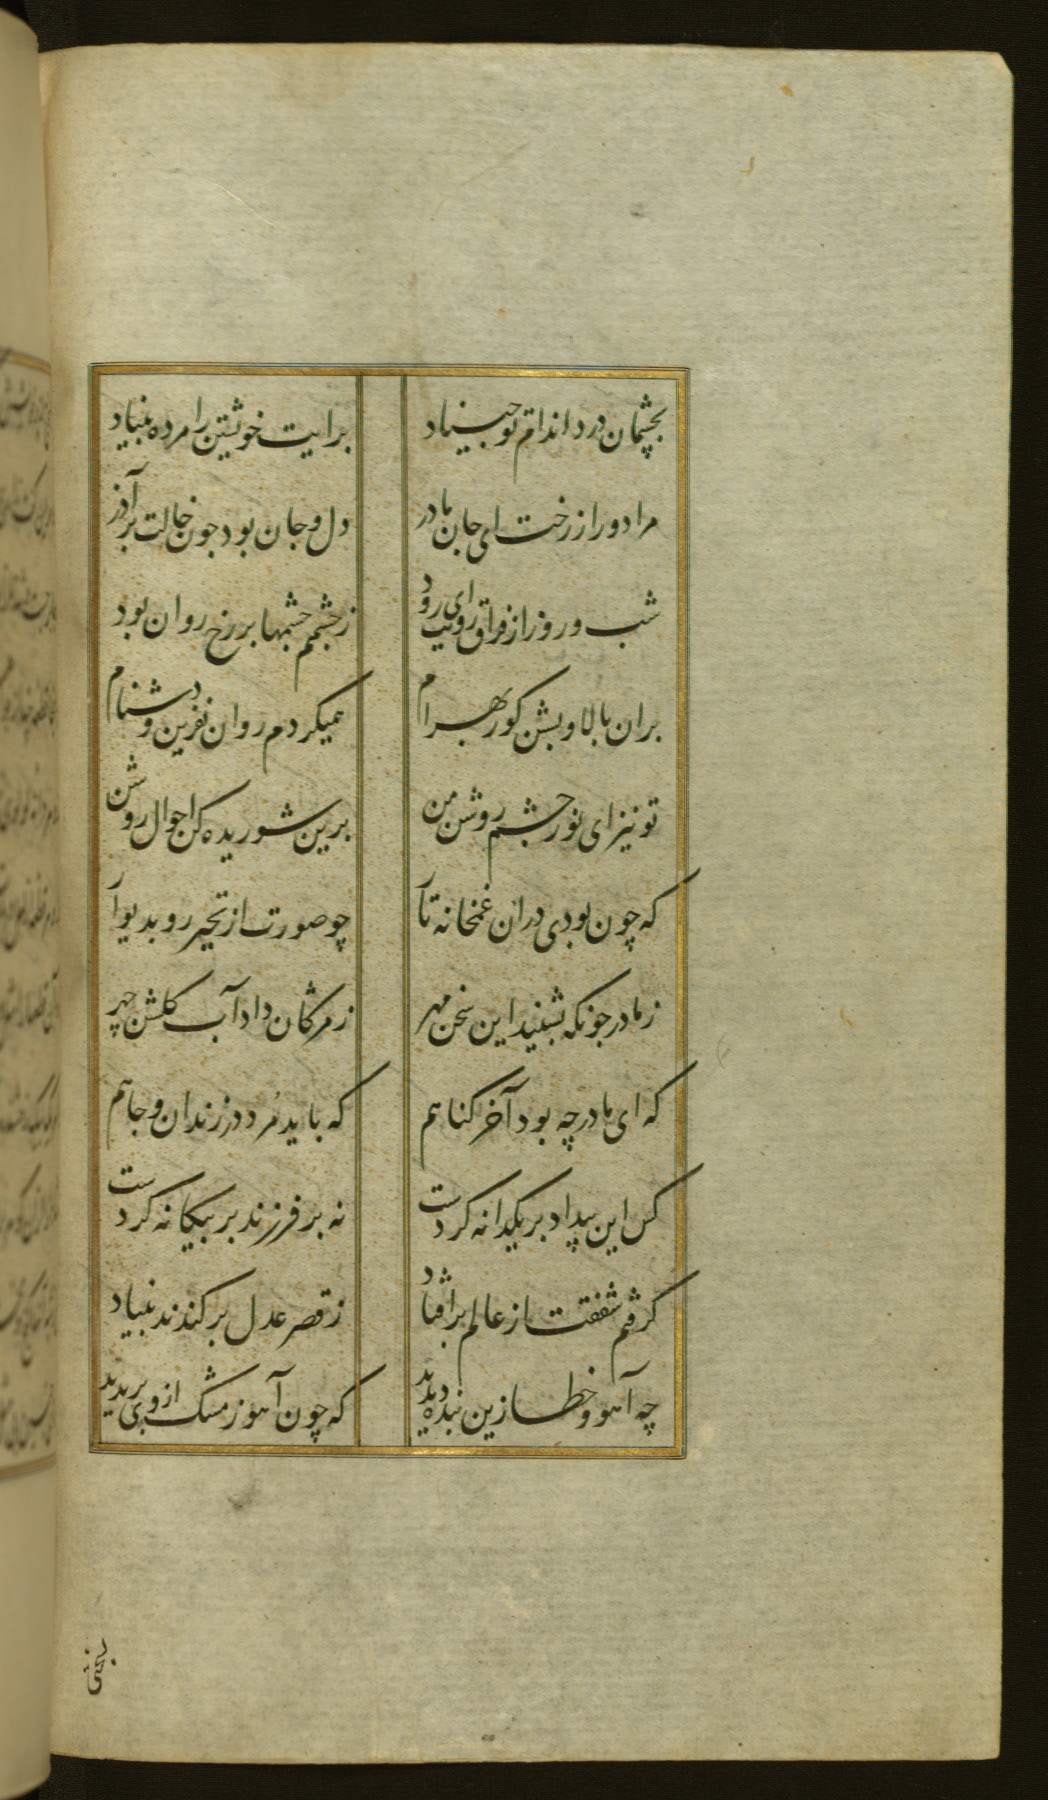 بچشمان درد اندام تو جنبیناد
برایت خویشتن را مرده بنیاد
مرا دور از رخت ای جان مادر
دل و جان بود چون خالت بر آذر
شب و روز از فراق رویت ای رود
ز چشمم چشمها بر رخ روان بود
بران بالا و بشن کور بهرام
همیکردم روان نفرین و دشنام
تو نیز ای نور چشم روشن من
برین شوریده کن احوال روشن
که چون بودی دران غمخانه تار
چو صورت از تحیر رو بدیوار
ز مادر چونکه بشنید این سخن مهر
ز مژکان داد آب کلشن چهر
که ای مادر چه بود آخر کناهم
که باید مرد در زندان و چاهم
کس این بیداد بر یکدانه کردست
نه بر فرزند بر بیکانه کردست
کرفتم شفقت از عالم برافتاد
ز قصر عدل برکندند بنیاد
چه آهو و خطا زین بنده دیدید
که چون آهو ز مشک از وی بریدید